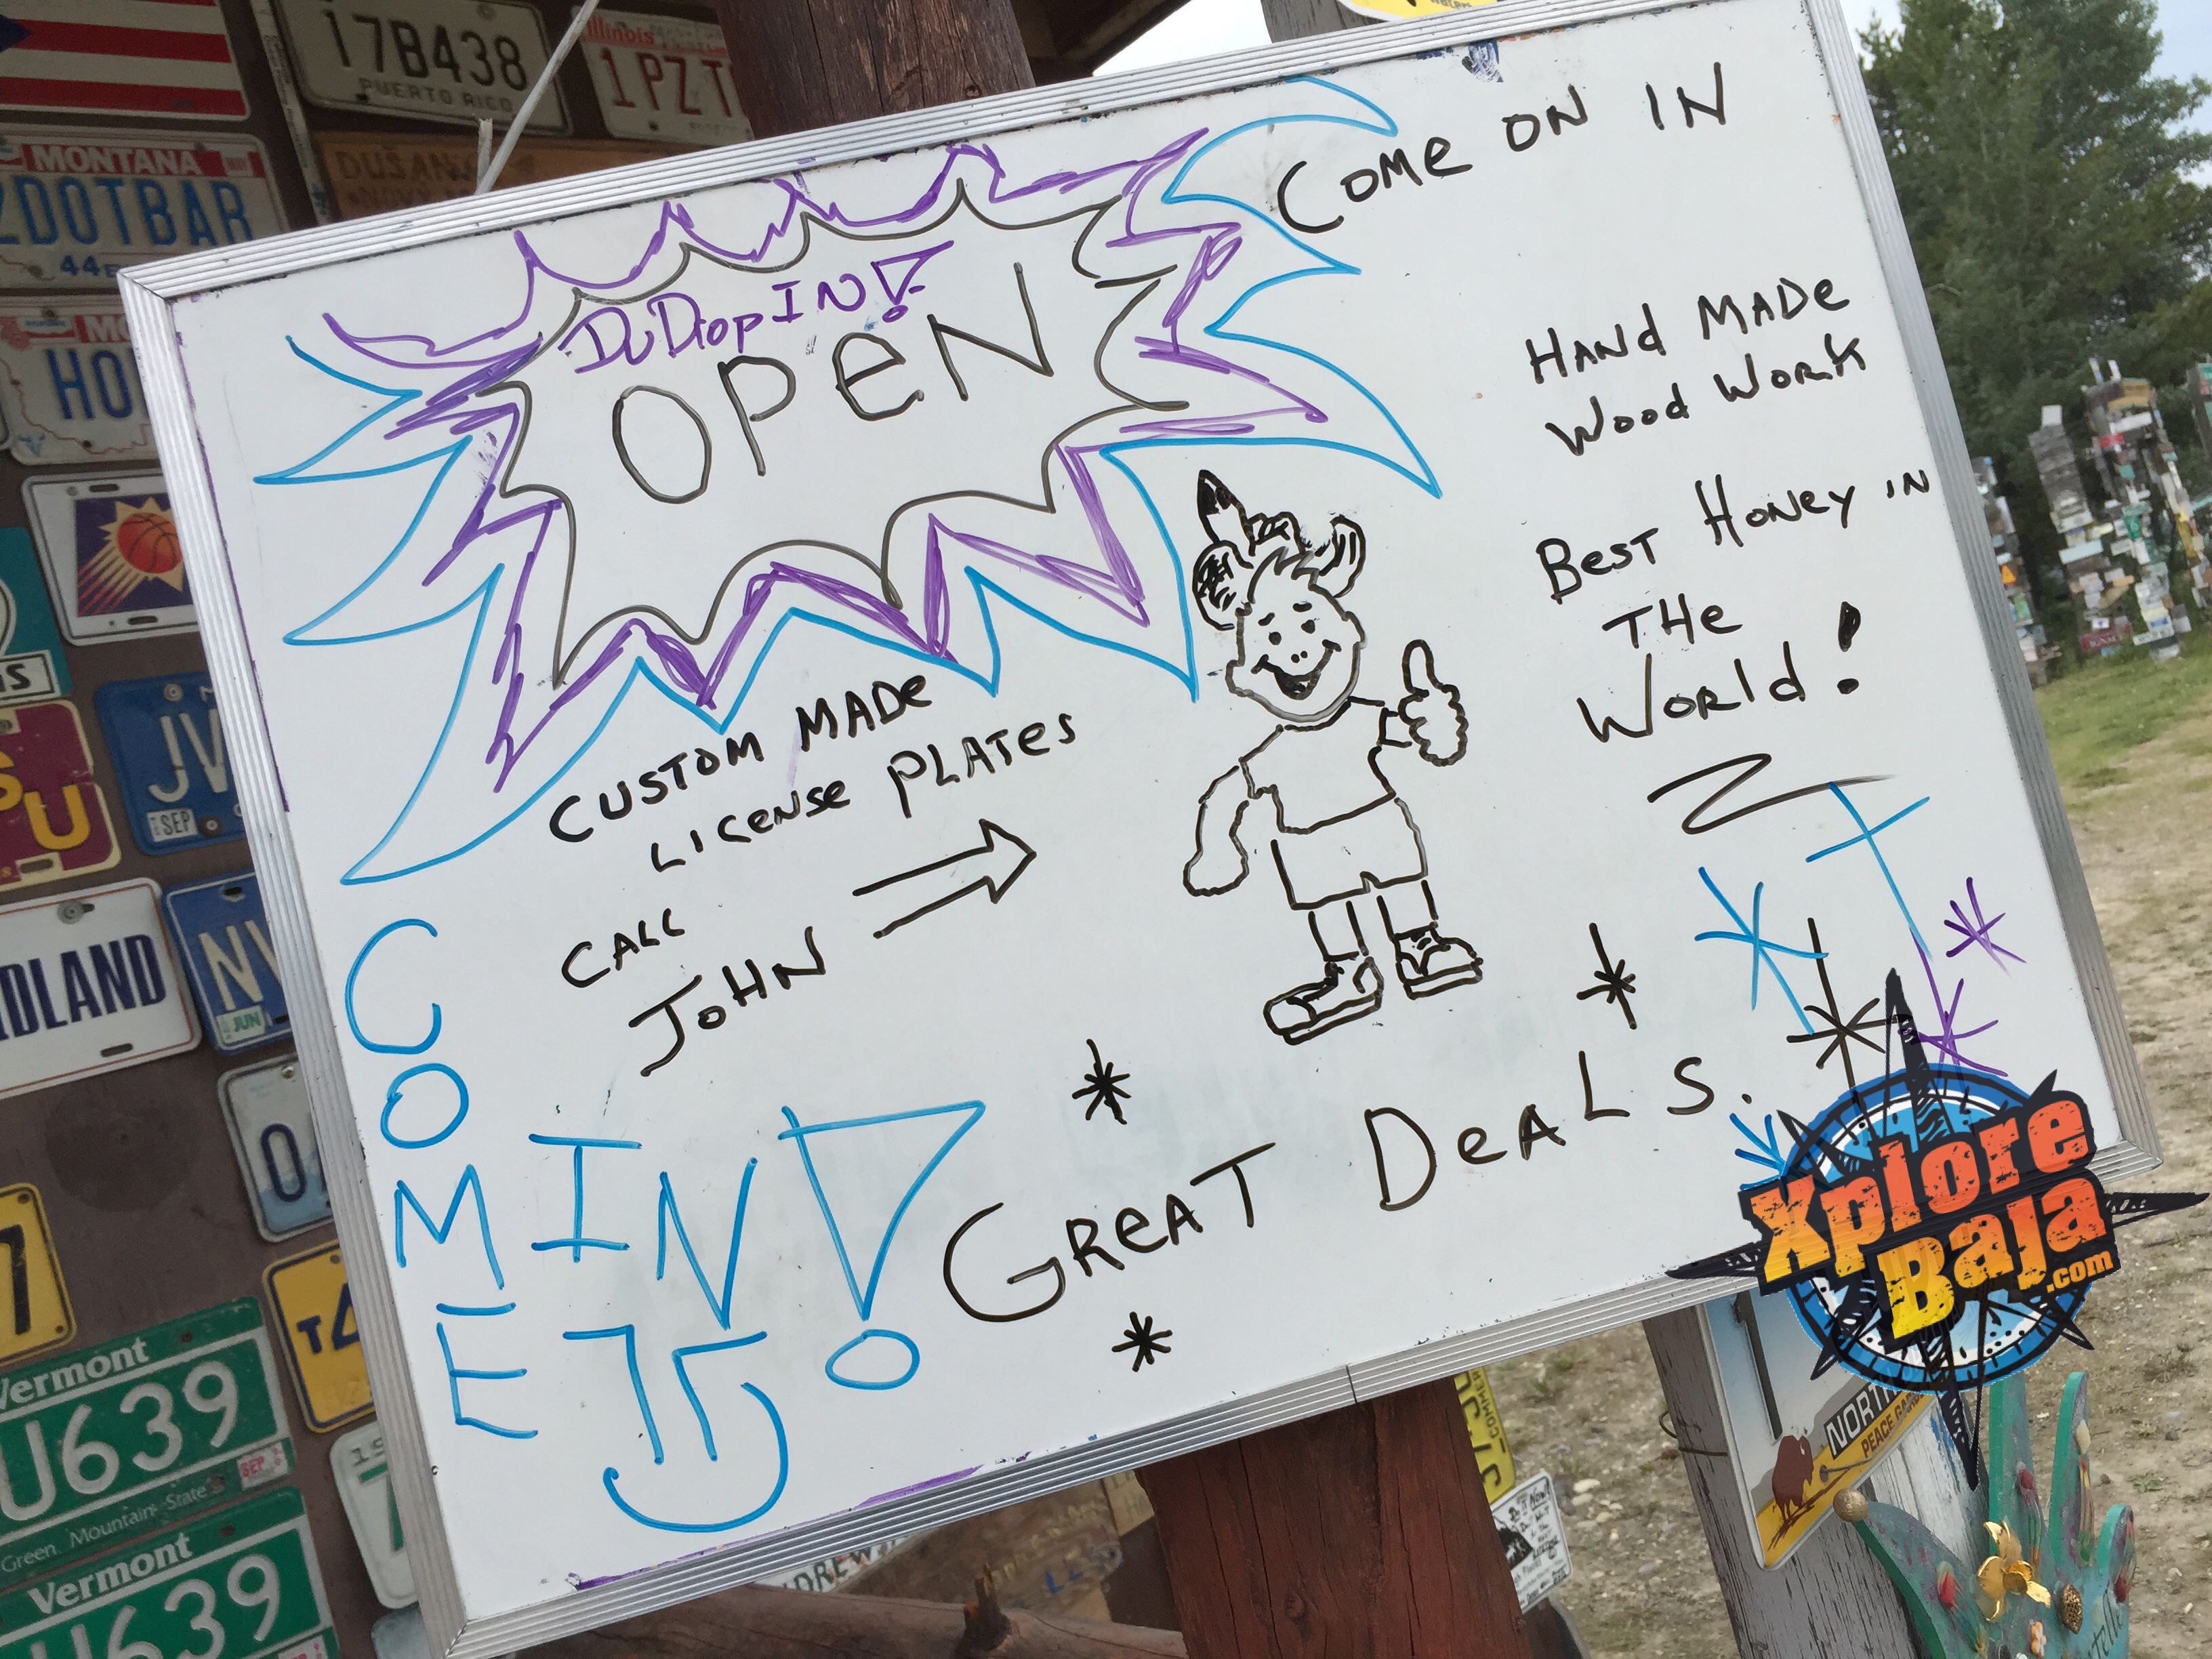 17B438
PUERTO RICO
Illinois
1 PZT
MONTANA
ZDOTBAR
44
HO
DuDrop IN!
OPEN
COME ON IN
HAND MADE
WOOD WORK
BEST HONEY IN
THE
WORLD!
CUSTOM MADE
LICENSE PLATES
CALL
JOHN
COME
IN!
GREAT DEALS.
JV
SEP
SU
DLAND
NV
JUN
Vermont
U639
SEP
Green Mountain State
Vermont
U639
NORTH
PEACE GAR
DREW
Xplore
Baja
.com